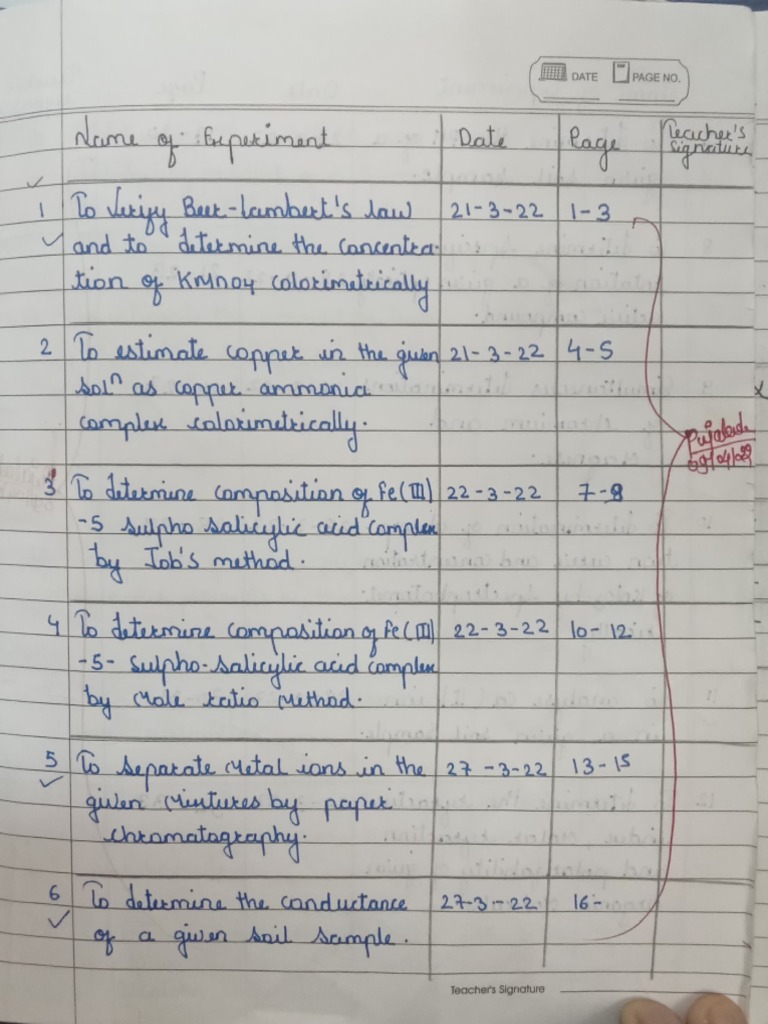 DATE PAGE NO.
Name of Experiment Date Page Teacher's Signature
1 To Verify Beer-Lambert's law 21-3-22 1-3
and to determine the concentra-
tion of KMnO4 colorimetrically
2 To estimate copper in the given 21-3-22 4-5
solⁿ as copper-ammonia
complex colorimetrically.
3 To determine composition of Fe(III) 22-3-22 7-9
-5 sulpho salicylic acid complex
by Job's method.
4 To determine composition of Fe(III) 22-3-22 10-12
-5- Sulpho-salicylic acid complex
by Mole ratio Method.
5 To separate metal ions in the 27-3-22 13-15
given mixtures by paper
chromatography.
6 To determine the conductance 27-3-22 16-
of a given soil sample.
Teacher's Signature